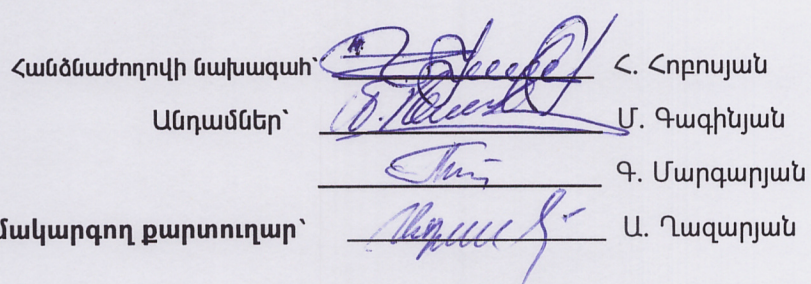 Հանձնաժողովի նախագահ՝ Հ. Հոբոսյան
Անդամներ՝ Մ. Գագինյան
Գ. Մարգարյան
մակարգող քարտուղար՝ Ա. Ղազարյան